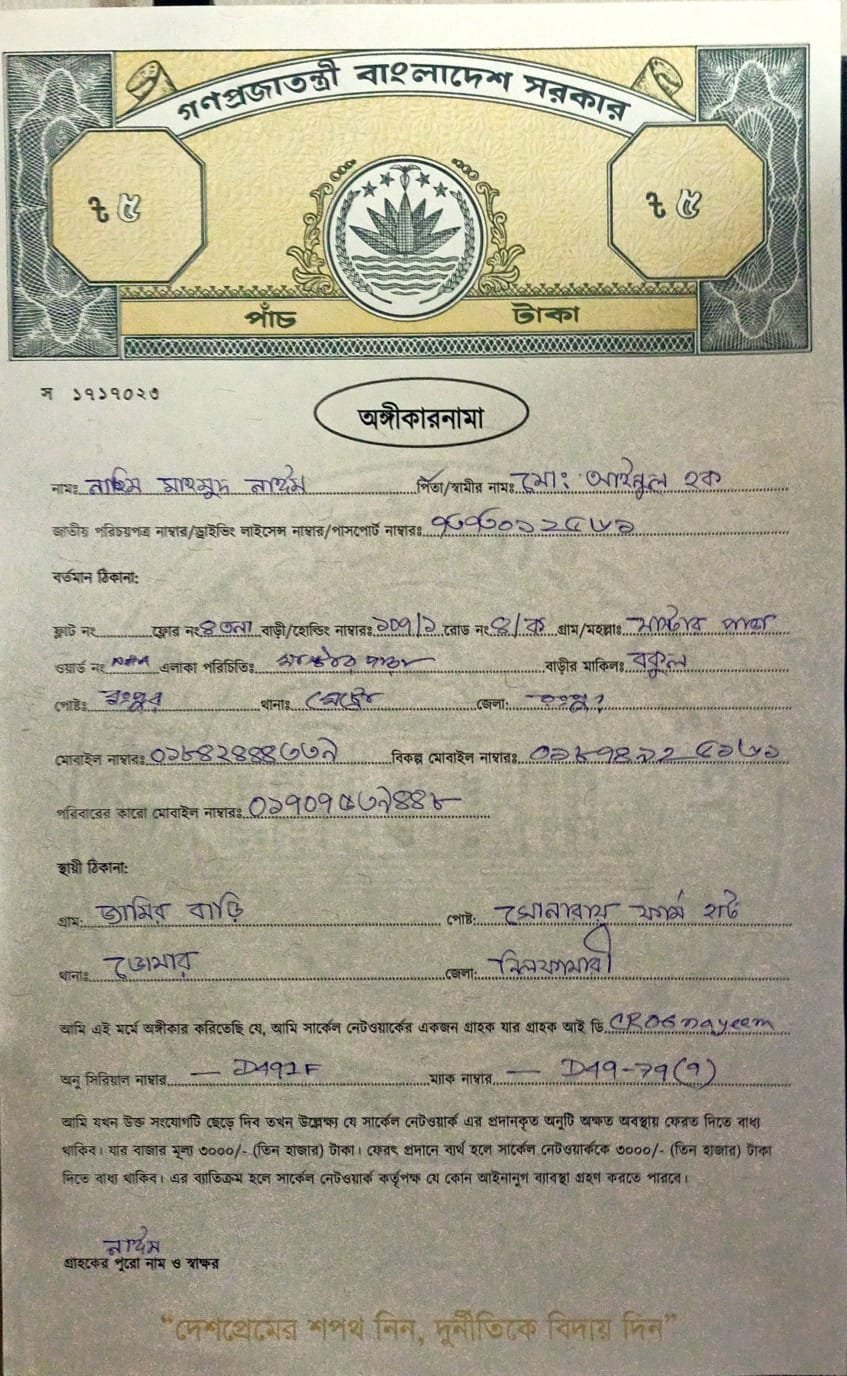 গণপ্রজাতন্ত্রী বাংলাদেশ সরকার
৳ ৫ ৳ ৫
পাঁচ টাকা
স ১৭১৭০২৩
অঙ্গীকারনামা
নামঃ নাহিম মাহমুদ নাঈম পিতা/স্বামীর নামঃ মোঃ আইনুল হক
জাতীয় পরিচয়পত্র নাম্বার/ড্রাইভিং লাইসেন্স নাম্বার/পাসপোর্ট নাম্বারঃ
বর্তমান ঠিকানা:
ফ্লাট নং ফ্লোর নংঃ ৪তলা বাড়ী/হোল্ডিং নাম্বারঃ ১০৭/১ রোড নংঃ ৪/ক গ্রাম/মহল্লাঃ মাস্টার পাড়া
ওয়ার্ড নং এলাকা পরিচিতিঃ মাস্টার পাড়া বাড়ীর মালিকঃ বকুল
পোষ্টঃ রংপুর থানাঃ মেট্রো জেলা: রংপুর
মোবাইল নাম্বারঃ ০১৮৪২৪৪৪৬৩৯ বিকল্প মোবাইল নাম্বারঃ
পরিবারের কারো মোবাইল নাম্বারঃ
স্থায়ী ঠিকানা:
গ্রাম: জামির বাড়ি পোষ্ট: সোনারায় ফার্ম হাট
থানাঃ ডোমার জেলা: নিলফামারী
আমি এই মর্মে অঙ্গীকার করিতেছি যে, আমি সার্কেল নেটওয়ার্কের একজন গ্রাহক যার গ্রাহক আই ডি CR06nayeem
অনু সিরিয়াল নাম্বার — D491F ম্যাক নাম্বার — D49-79(9)
আমি যখন উক্ত সংযোগটি ছেড়ে দিব তখন উল্লেক্ষ্য যে সার্কেল নেটওয়ার্ক এর প্রদানকৃত অনুটি অক্ষত অবস্থায় ফেরত দিতে বাধ্য
থাকিব। যার বাজার মূল্য ৩০০০/- (তিন হাজার) টাকা। ফেরৎ প্রদানে ব্যর্থ হলে সার্কেল নেটওয়ার্ককে ৩০০০/- (তিন হাজার) টাকা
দিতে বাধ্য থাকিব। এর ব্যাতিক্রম হলে সার্কেল নেটওয়ার্ক কর্তৃপক্ষ যে কোন আইনানুগ ব্যাবস্থা গ্রহণ করতে পারবে।
নাঈম
গ্রাহকের পুরো নাম ও স্বাক্ষর
“দেশপ্রেমের শপথ নিন, দুর্নীতিকে বিদায় দিন”